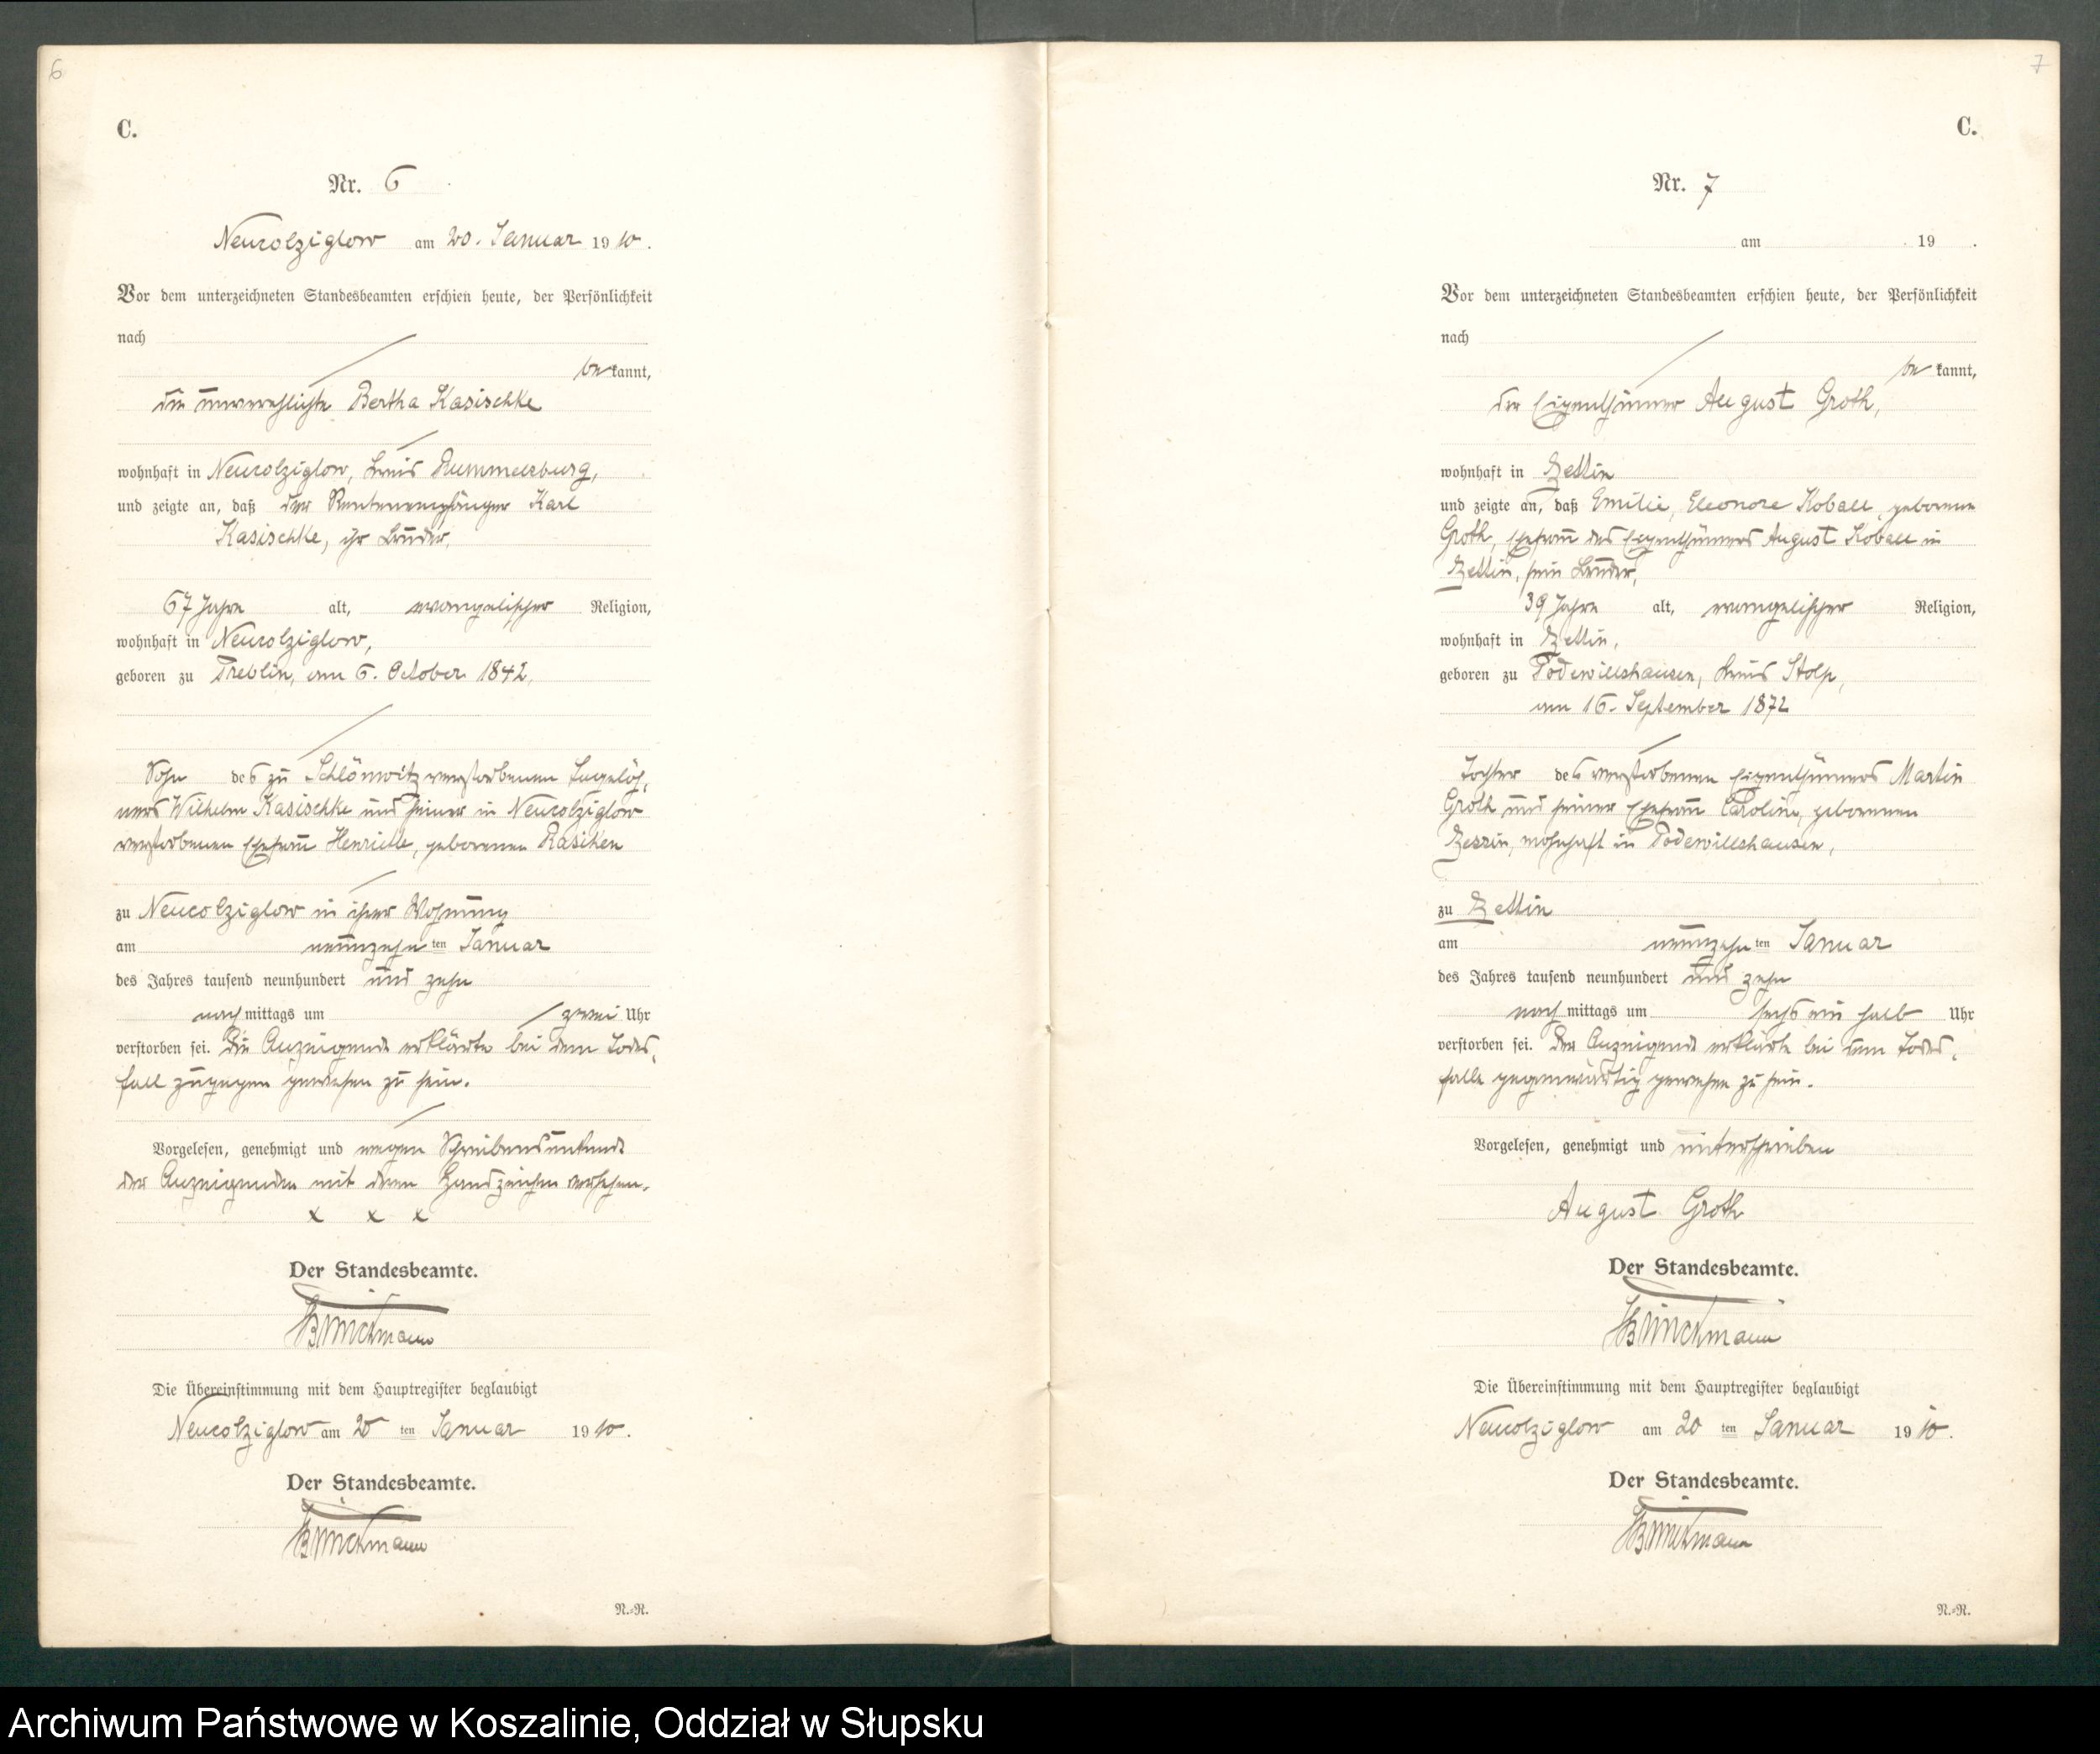 6
C.
Nr. 6
Neucolziglow am 20. Januar 1910.
Vor dem unterzeichneten Standesbeamten erschien heute, der Persönlichkeit
nach
be kannt,
die unverehelichte Bertha Kasischke
wohnhaft in Neucolziglow, Kreis Rummelsburg,
und zeigte an, daß der Rentenempfänger Karl
Kasischke, ihr Bruder,
67 Jahre alt, evangelischer Religion,
wohnhaft in Neucolziglow,
geboren zu Treblin, am 6. October 1842,
Sohn des zu Schlönwitz verstorbenen Tagelöh-
ners Wilhelm Kasischke und seiner in Neucolziglow
verstorbenen Ehefrau Henriette, geborenen Rasiken
zu Neucolziglow in ihrer Wohnung
am neunzehn ten Januar
des Jahres tausend neunhundert und zehn
nach mittags um zwei Uhr
verstorben sei. Die Anzeigende erklärte bei dem Todes-
fall zugegen gewesen zu sein.
Vorgelesen, genehmigt und wegen Schreibensunkunde
der Anzeigenden mit deren Handzeichen versehen.
x x x
Der Standesbeamte.
Brinckmann
Die Übereinstimmung mit dem Hauptregister beglaubigt
Neucolziglow am 20 ten Januar 1910.
Der Standesbeamte.
Brinckmann
N.-R.
7
C.
Nr. 7
am 19 .
Vor dem unterzeichneten Standesbeamten erschien heute, der Persönlichkeit
nach
be kannt,
der Eigenthümer August Groth,
wohnhaft in Zettin
und zeigte an, daß Emilie, Eleonore Koball, geborene
Groth, Ehefrau des Eigenthümers August Koball in
Zettin, sein Bruder,
39 Jahre alt, evangelischer Religion,
wohnhaft in Zettin,
geboren zu Podewillshausen, Kreis Stolp,
am 16. September 1872
Tochter des verstorbenen Eigenthümers Martin
Groth und seiner Ehefrau Caroline, geborenen
Zessin, wohnhaft in Podewillshausen,
zu Zettin
am neunzehn ten Januar
des Jahres tausend neunhundert und zehn
nach mittags um sechs ein halb Uhr
verstorben sei. Der Anzeigende erklärte bei dem Todes-
falle gegenwärtig gewesen zu sein.
Vorgelesen, genehmigt und unterschrieben
August Groth
Der Standesbeamte.
Brinckmann
Die Übereinstimmung mit dem Hauptregister beglaubigt
Neucolziglow am 20 ten Januar 1910.
Der Standesbeamte.
Brinckmann
N.-R.
Archiwum Państwowe w Koszalinie, Oddział w Słupsku